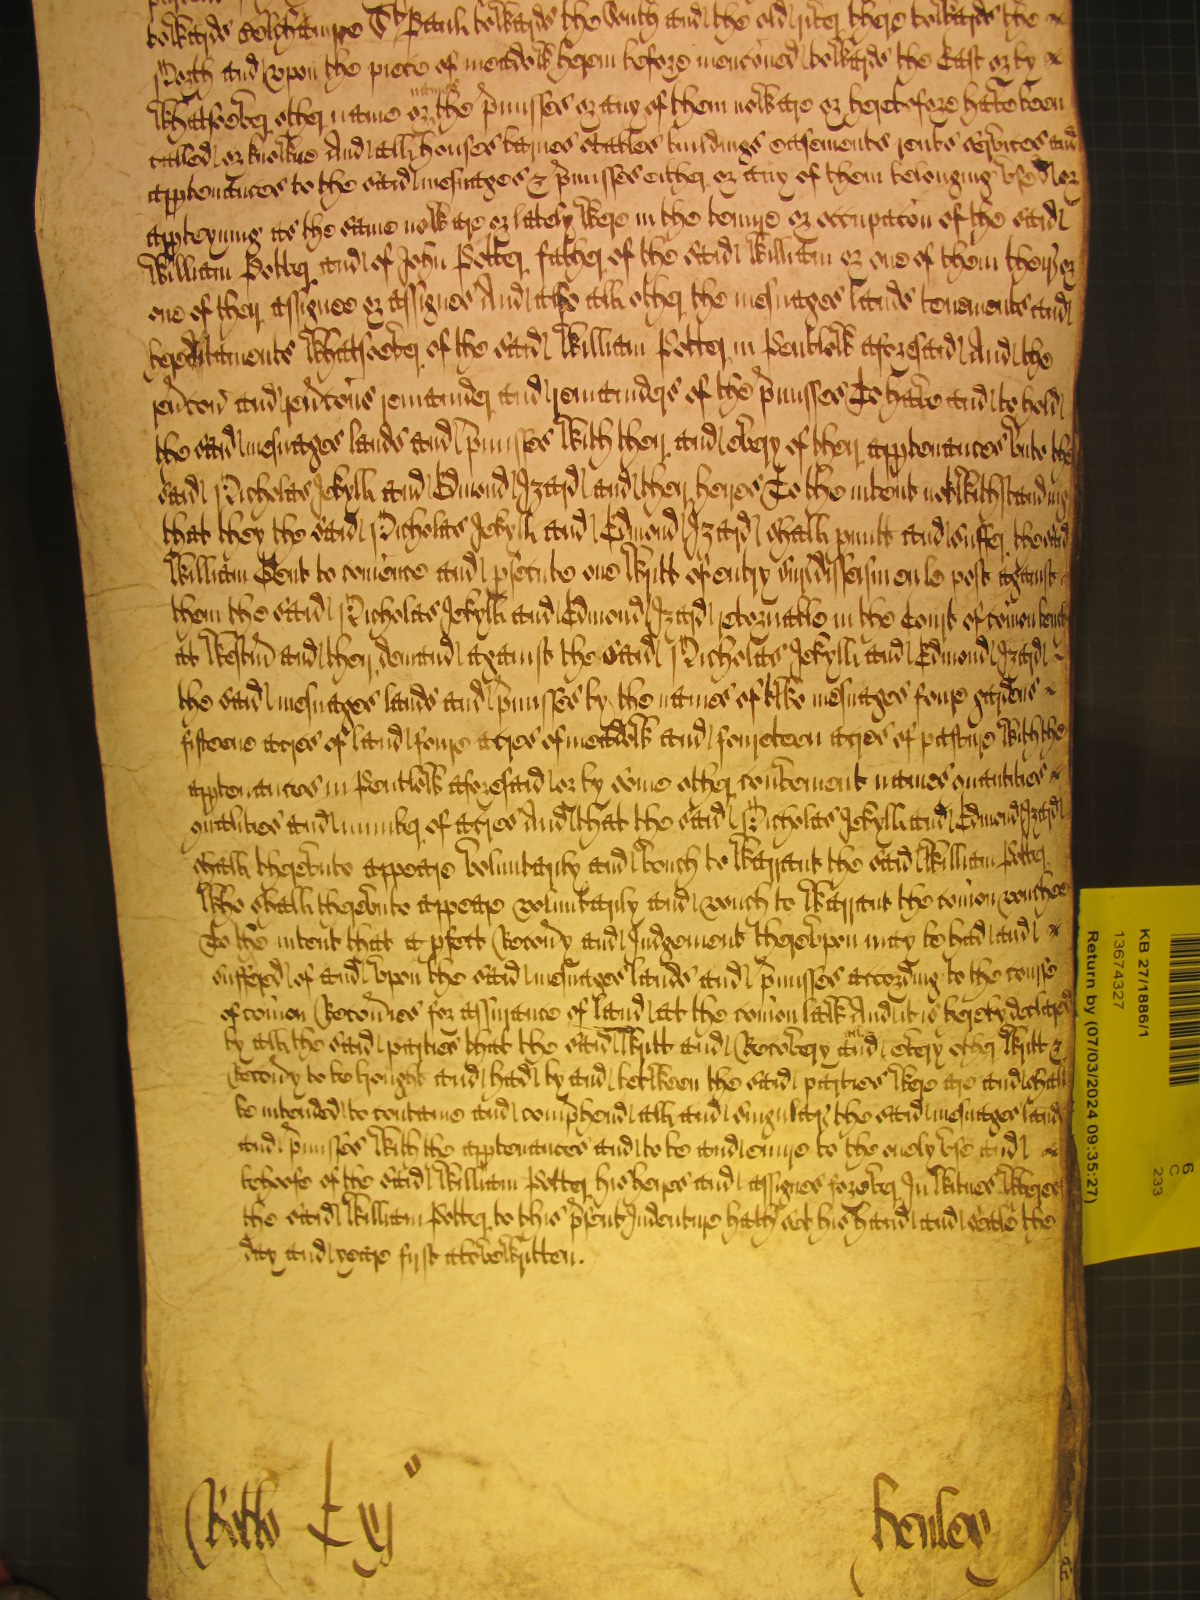 towards Belchampe St Paul towards the South and the old river there towards the
North and upon the piece of meadow herein before mencioned towards the East or by
whatsoever other name or names the p'misses or any of them now are or heretofore have been
called or knowne And all houses barnes stables buildings easements rents services and
appten'nces to the said mesuages & p'misses either or any of them belonging used or
apperteyning as the same now are or lately were in the tenure or occupacon of the said
William Potter and of John Potter father of the said William or one of them their or
one of their assignee or assignes And also all other the mesuages lands tenements and
hereditaments whatsoever of the said William Potter in Pentlow aforesaid And the
rev'con and rev'cons remainder and remainders of the p'misses To have and to hold
the said mesuages lands and p'misses with their and every of their apptenances unto the
said Nicholas Jekyll and Edmond Izard and their heires To the intent notwithstanding
that they the said Nicholas Jekyll and Edmond Izard shall p'mitt and suffer the said
William Gent to comence and p'secute one writt of entry sur disseisin en le post against
them the said Nicholas Jekyll and Edmond Izard retornable in the Court of comon bench
at Westm' and their demand against the said Nicholas Jekyll and Edmond Izard
the said mesuages lands and p'misses by the names of two mesuages foure gardens
fifteene acres of land foure acres of meadow and foureteen acres of pasture with the
apptenances in Pentlow aforesaid or by some other convenient names quantities
qualities and number of acres And that the said Nicholas Jekyll and Edmond Izard
shall thereunto appeare voluntarily and vouch to warrant the said William Potter
Who shall thereunto appeare voluntarily and vouch to warrant the comon vouchee
To the intent that a p'fect Recov'y and Judgement thereupon may be had and
suffered of and upon the said mesuages lands and p'misses according to the course
of comon Recov'ies for assurance of land att the comon law And it is hereby declared
by all the said parties that the said writt and Recovery and all every other writt &
Recov'y to be brought and had by and between the said parties were are and shall
be intended to containe and comp'hend all and singular the said mesuages lands
and p'misses with the apptenances and to be and enure to the onely use and
behoofe of the said William Potter his heires and assignes forever In Witnes whereof
the said William Potter to this p'sent Indenture hath set his hand and seale the
day and yeare first abovewritten.
Henley
KB 27/1886/1
13674327
Return by (07/03/2024 09:35:27)
6
C
233